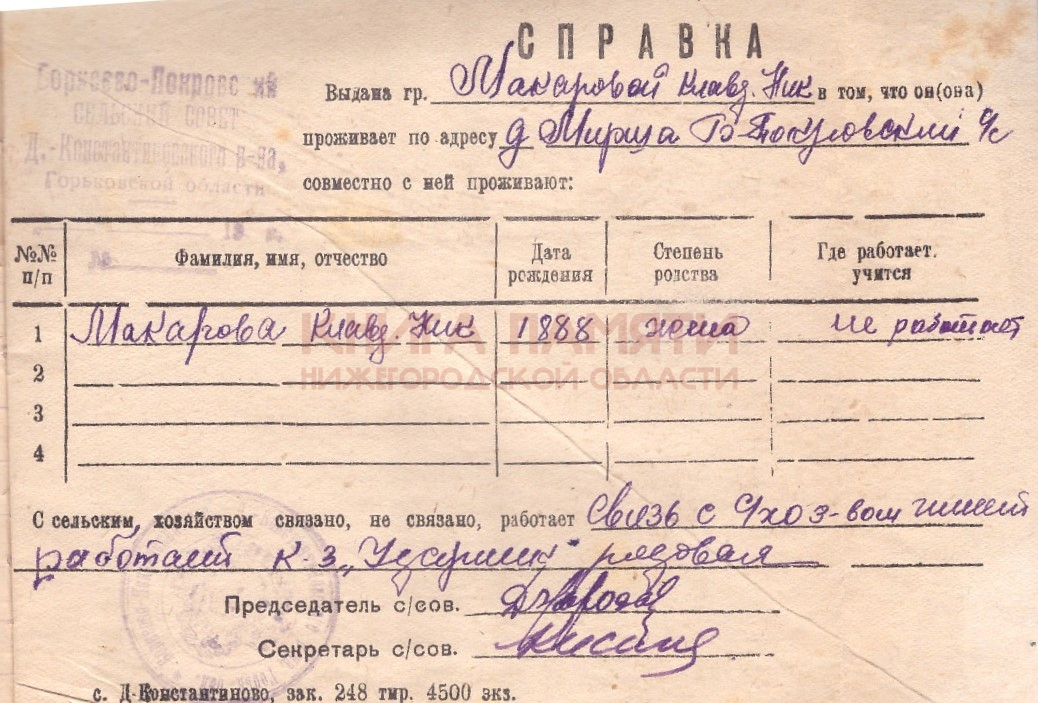 СПРАВКА
Борисово-Покровский
СЕЛЬСКИЙ СОВЕТ
Д.-Константиновского р-на,
Горьковской области
19 г.
№
Выдана гр. Макаровой Клавд. Ник в том, что он(она)
проживает по адресу д Мириса Б с/с
совместно с ней проживают:
№№ п/п Фамилия, имя, отчество Дата рождения Степень родства Где работает. учится
1 Макарова Клавд. Ник 1888 жена не работает
2
3
4
КНИГА ПАМЯТИ
НИЖЕГОРОДСКОЙ ОБЛАСТИ
С сельским, хозяйством связано, не связано, работает Связь с с/хоз-вом имеет
работает к-з рядовая
Председатель с/сов.
Секретарь с/сов.
с. Д-Константиново, зак. 248 тир. 4500 экз.